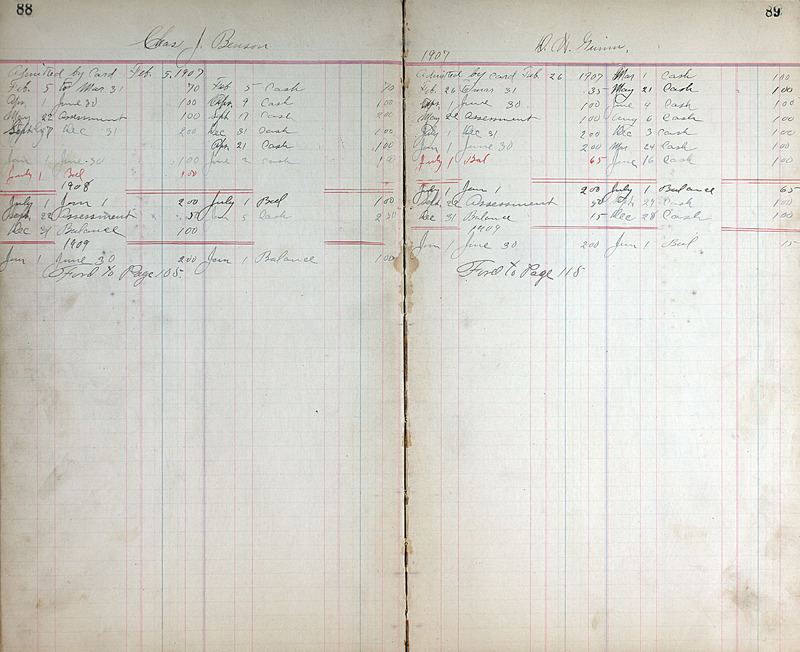 88
Chas J. Benson
Admitted by Card Feb. 5, 1907
Feb. 5 to Mar 31 70 Feb 5 Cash 70
Apr. 1 June 30 1.00 Apr. 9 Cash 1.00
May 22 Assessment 1.00 Sept 17 Cash 2.00
Dec 31 2.00 Dec 31 Cash 1.00
Apr 21 Cash 1.00
Jan 1 June 30 1.00 June 2 Cash
July 1 Bal 1.00
1908
July 1 Jan 1 2.00 July 1 Bal 1.00
Sept. 22 Assessment .50 5 Cash 2.50
Dec 31 Balance 1.00
1909
Jan 1 June 30 2.00 Jan 1 Balance 1.00
Ford to Page 105
89
1907
Admitted by Card Feb 26 1907 Mar 1 Cash 1.00
Feb. 26 to Mar 31 .35 May 21 Cash 1.00
Apr. 1 June 30 1.00 June 4 Cash 1.00
May 22 Assessment 1.00 Aug 6 Cash 1.00
July 1 Dec 31 2.00 Dec 3 Cash 1.00
Jan 1 June 30 2.00 Mar 24 Cash 1.00
July 1 Bal 65 June 16 Cash 1.00
July 1 Jan 1 2.00 July 1 Balance 65
Sept. 22 Assessment 50 Sept. 29 Cash 1.00
Dec 31 Balance 15 Dec 28 Cash 1.00
1909
Jan 1 June 30 2.00 Jan 1 Bal 15
Ford to Page 115